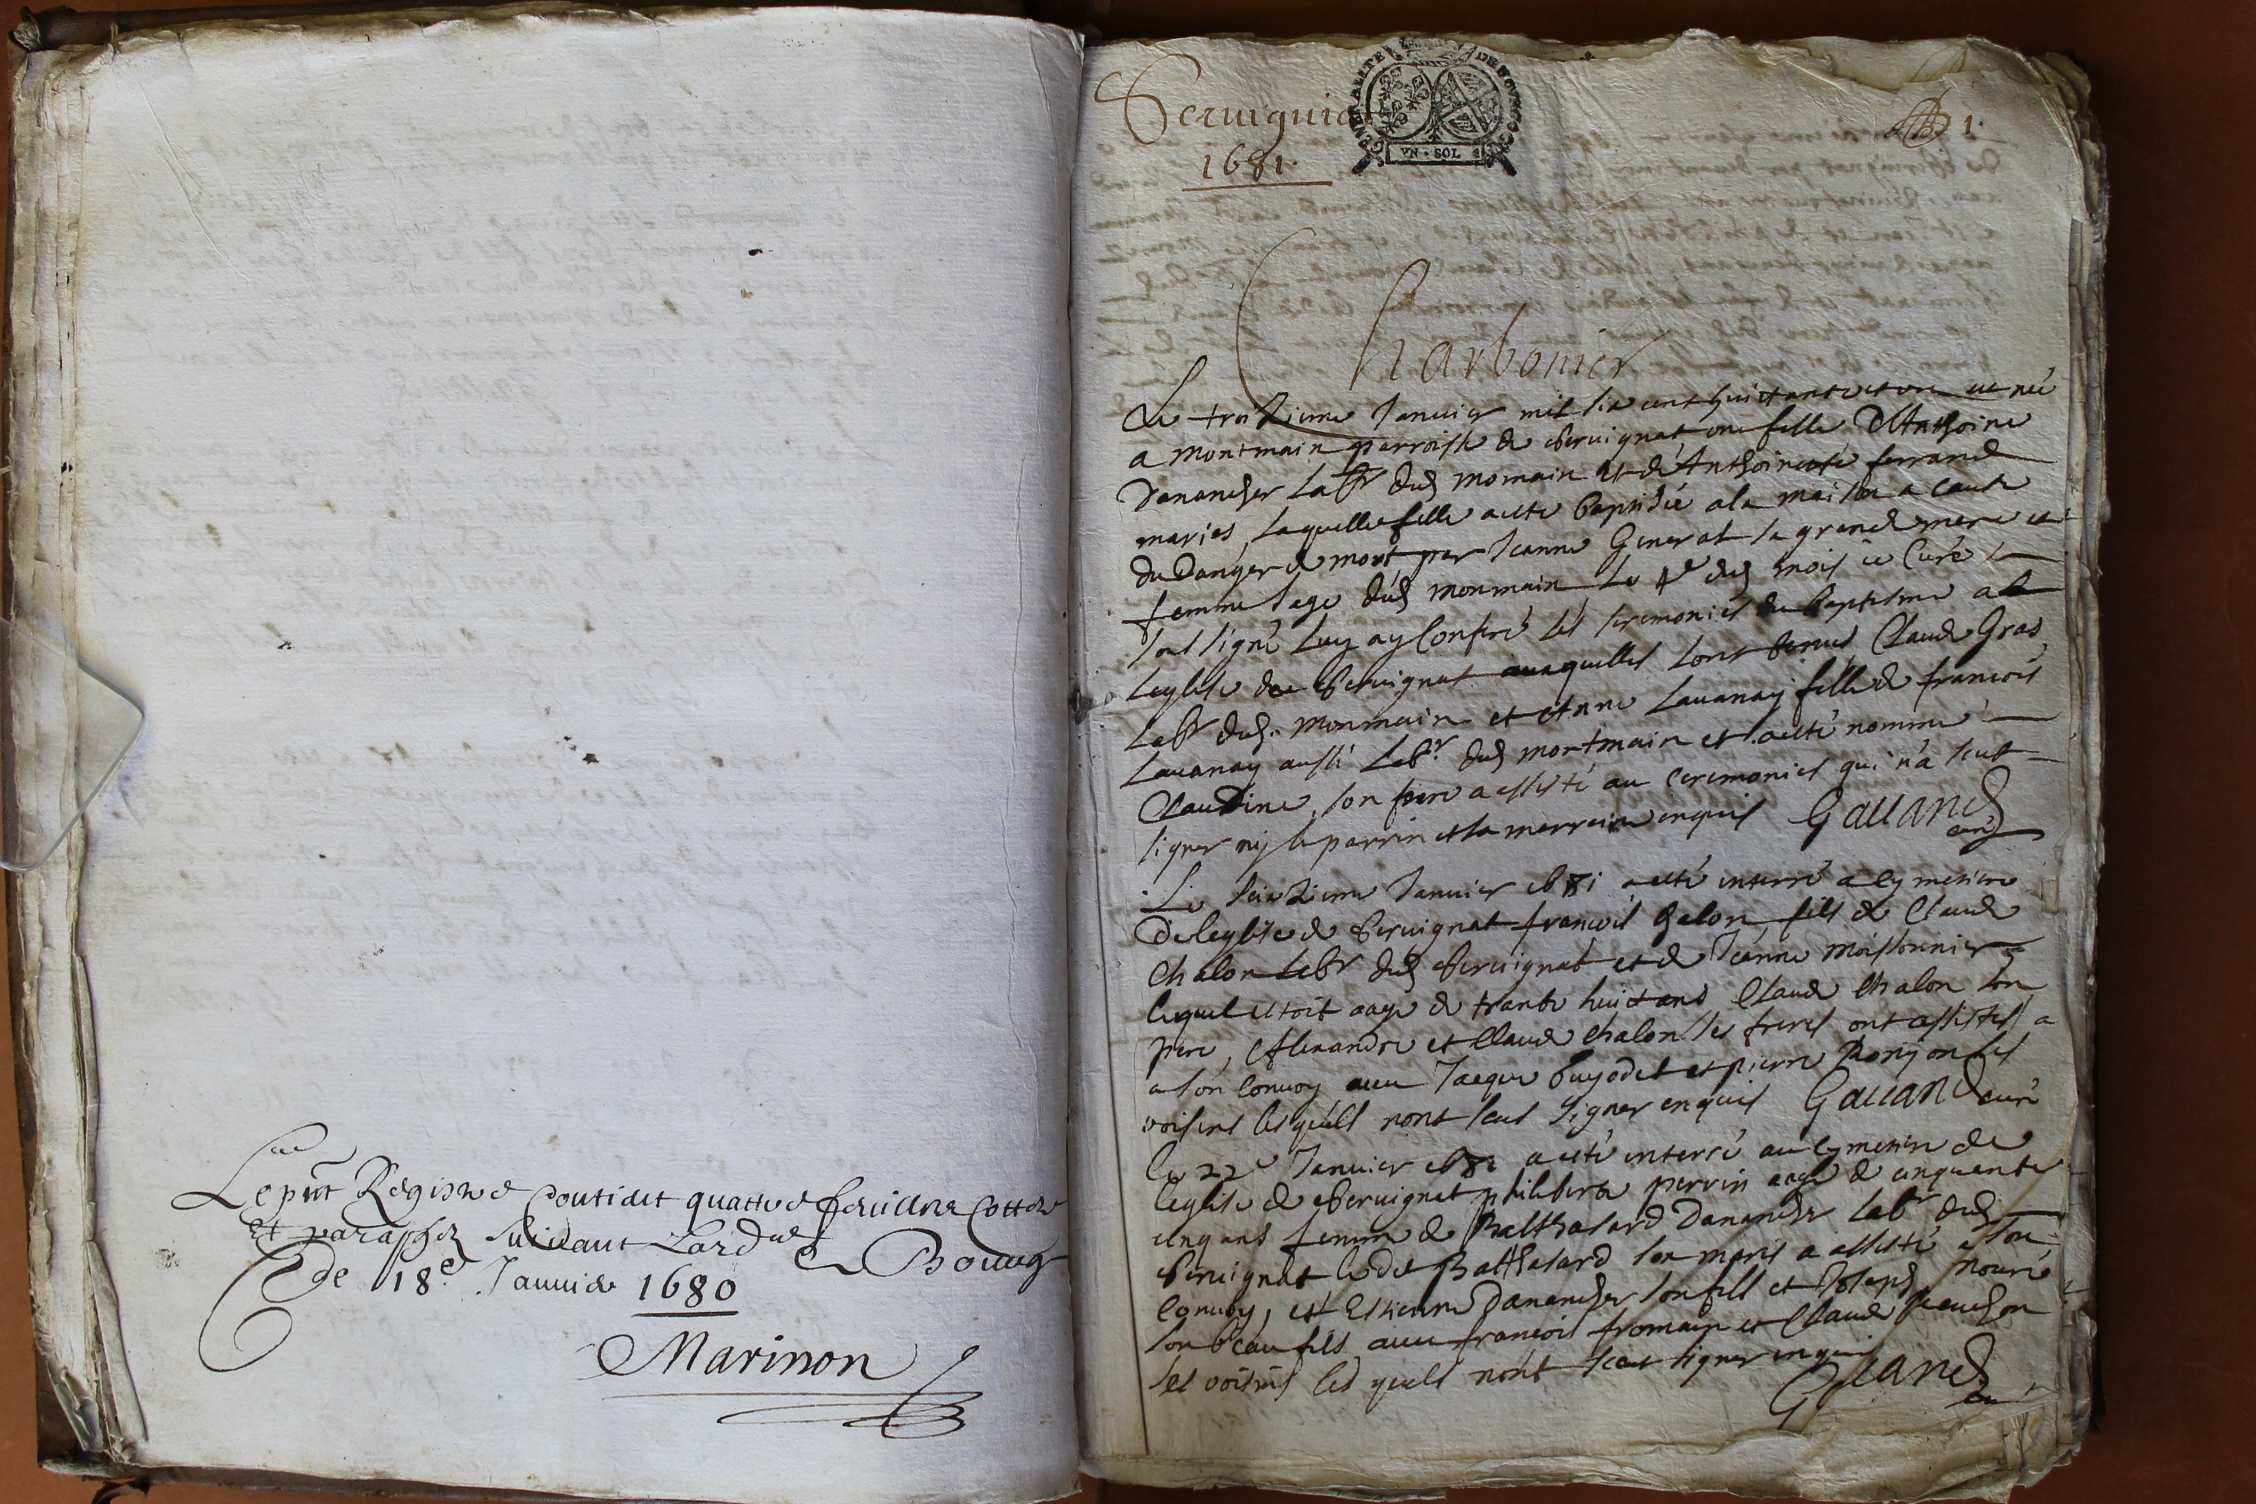 Le pnt Registre Contient quattre feuillets Cottez
Et paraphez suivant Lard
de 18e Januier 1680
Marinon
Seruignia
1681.
GENERALITE DE BOVRGOGNE
VN · SOL
1.
Charbonier
Le troizieme Januier mil six cent huictante et vn est née
a montmain parroisse de seruignat une fille d'Anthoine
Danancher Labr dud momain et de Anthoinette ferrand
maries, laquelle fille a esté baptisée a la maison a cause
du danger de mort par Jeanne Generat sa grand mere et
femme sage dud monmain Le 4e dud mois ie Curé
soussigné luy ay Conferé les seremonies du baptesme a
leglise de seruignat auxquelles sont venus Claude Gras
Labr dud. monmain et Anne Lauanay fille de francois
Lauanay aussi Labr dud mortmain et a esté nommé
Claudine, son pere a assisté au ceremonies qui n'a sceut
signer ny le parrin et la marreine enquis Gauand
curé
Le seizieme Januier 1681 a esté enterré a cymetiere
de leglise de seruignat francois Chalon fils de Claude
Chalon Labr dud seruignat et de Jeanne moissonnier
lequel estoit aagé de trante huict ans Claude Chalon son
pere, Alexandre et Claude Chalon ses freres ont assistes a
a son Conuoy auec Jaque buyodet et pierre ses
voisins lesquels nont sceus signer enquis Gauand curé
Le 22e Januier 1681 a esté enterré au cymetiere de
leglise de seruignat philiberte perrin aagé de cinquante
cinq ans femme de Balthasard Danancher Labr dud
seruignat ledit Balthasard son maris a assisté a son
Conuoy, et Estienne Danancher son fils et Joseph mouré
son beau fils auec francois fromain et Claude
ses voisins lesquels nont sceut signer enquis
Gauand
curé